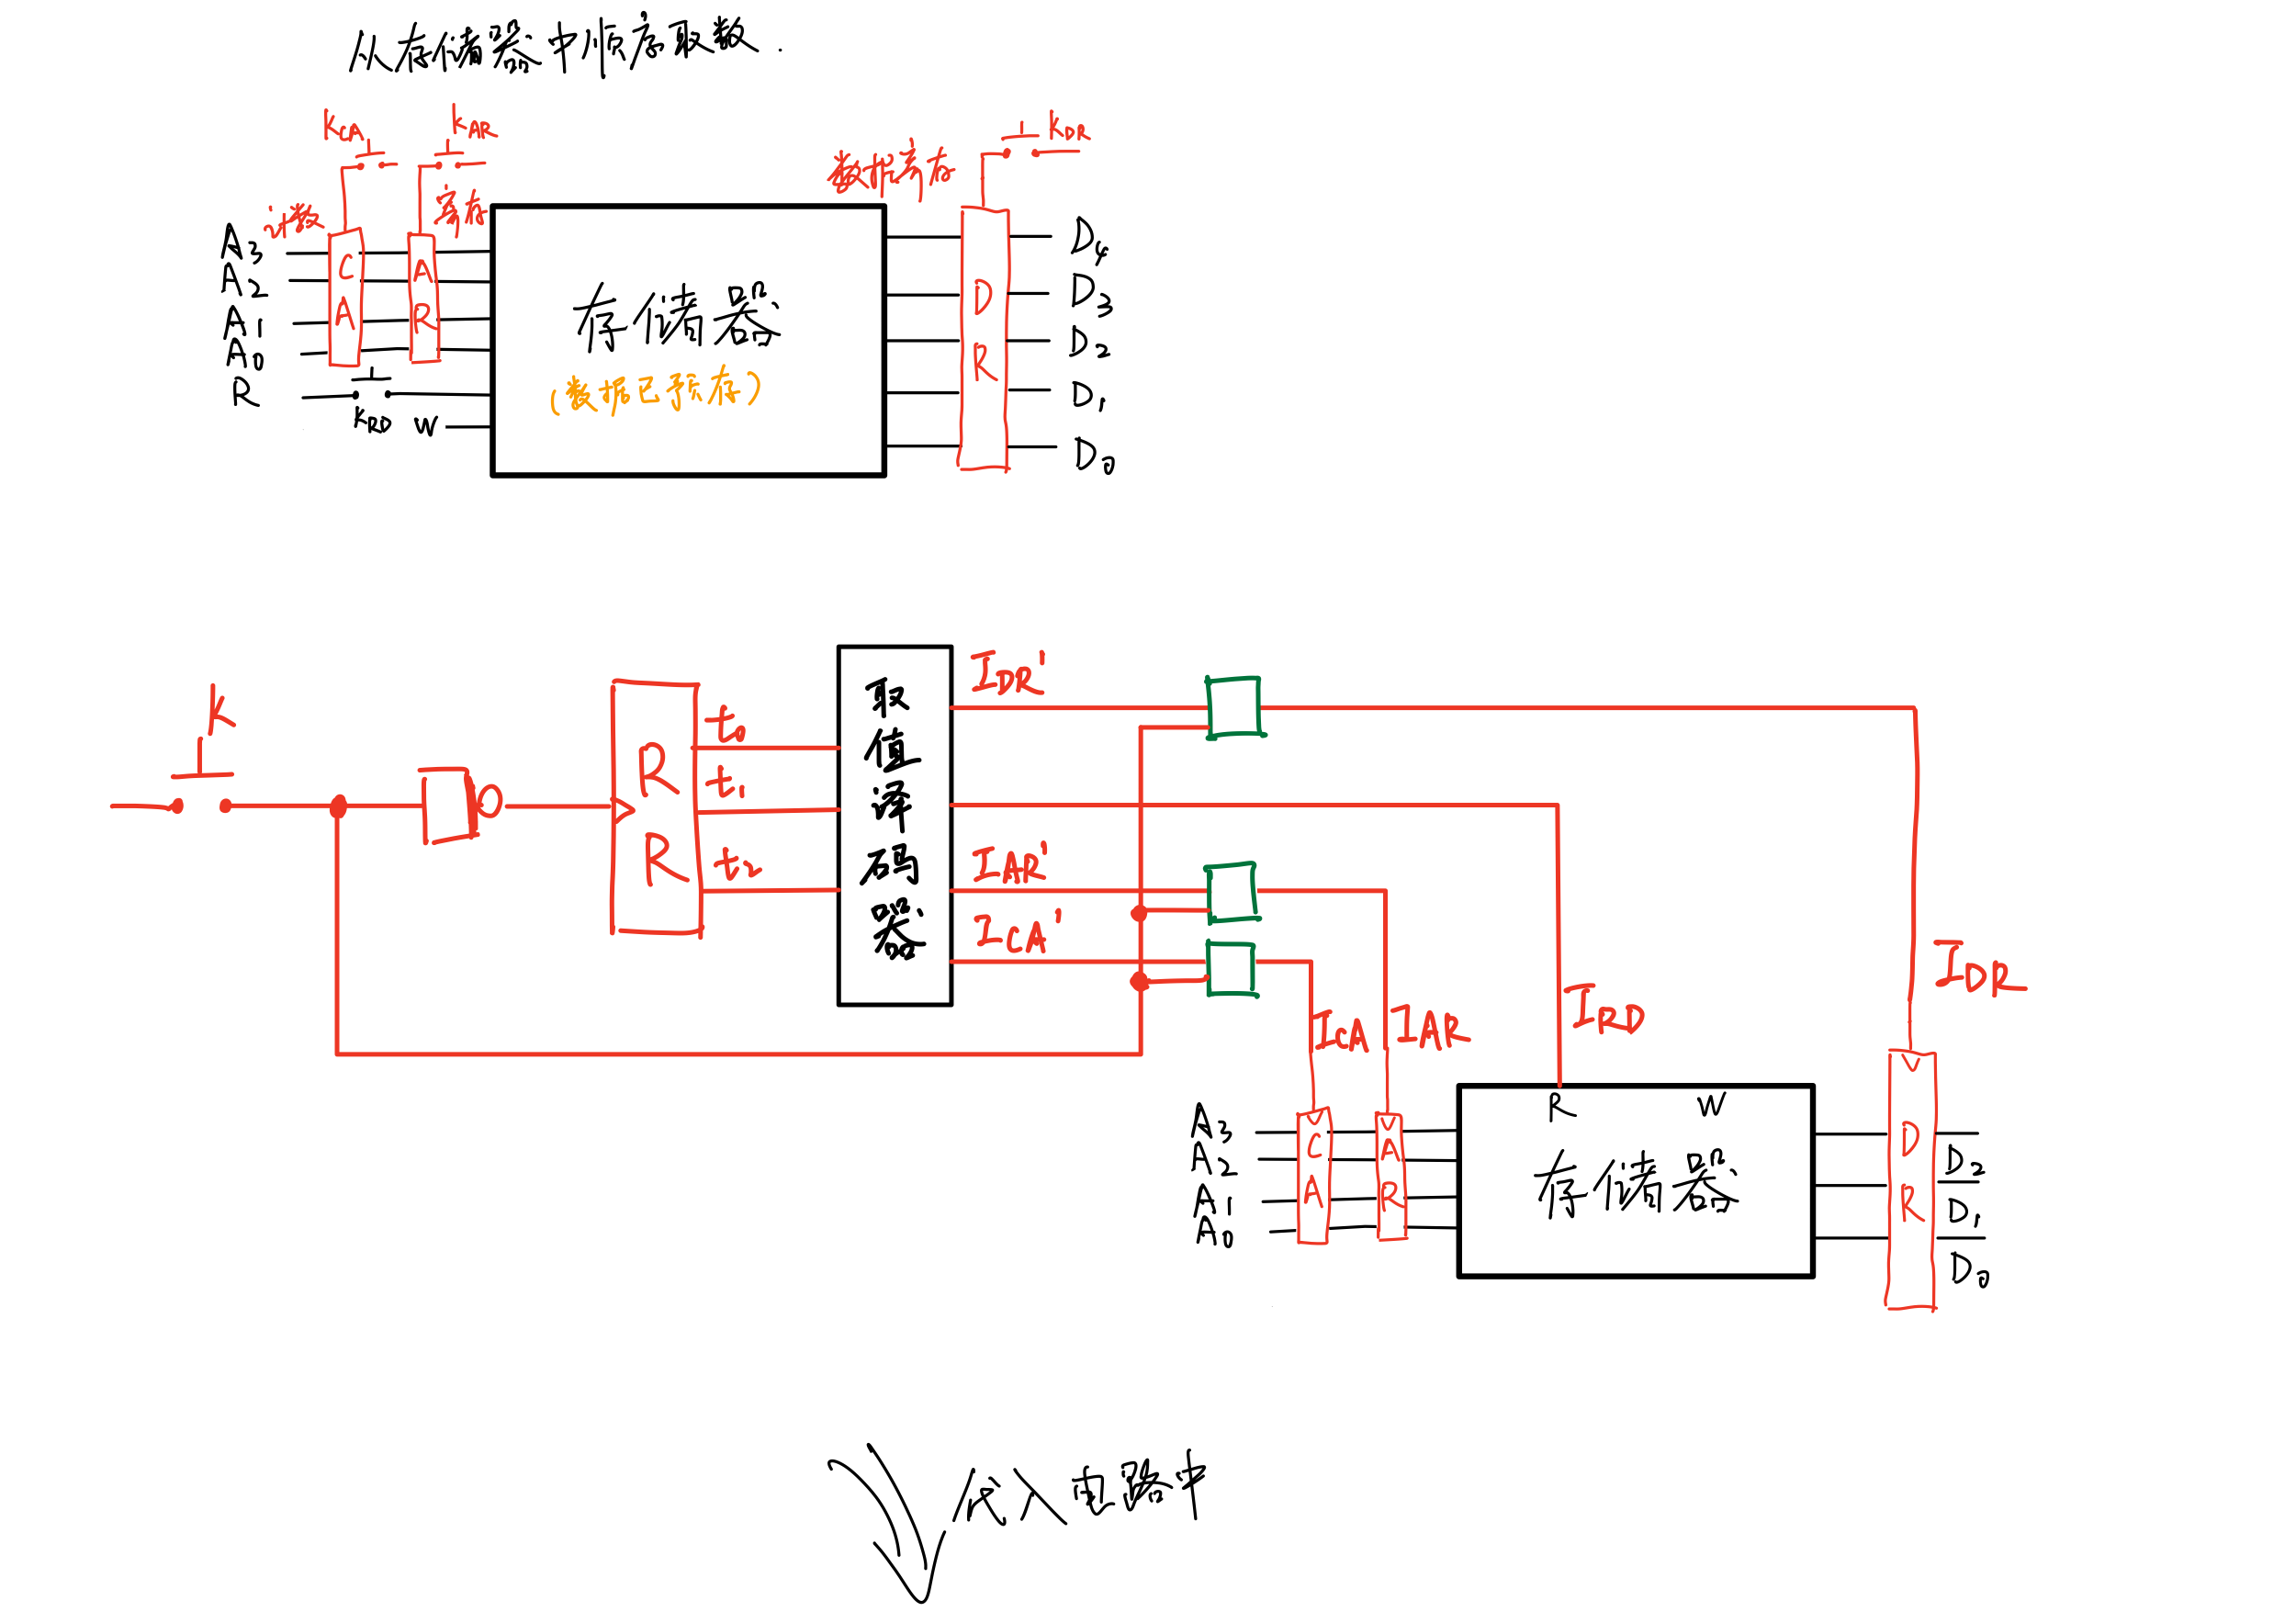 从存储器中顺序取数.
KCA
KAR
计数
寄存
数据寄存
KDR
A3
A2
A1
A0
R
KRD
W
CA
AR
存储器
(数据已预存)
DR
D4
D3
D2
D1
D0
K
RR
t0
t1
t2
取值译码器
IDR'
IAR'
ICA'
ICA
IAR
IRD
IDR
A3
A2
A1
A0
CA
AR
R
W
存储器
DR
D2
D1
D0
代入电路中